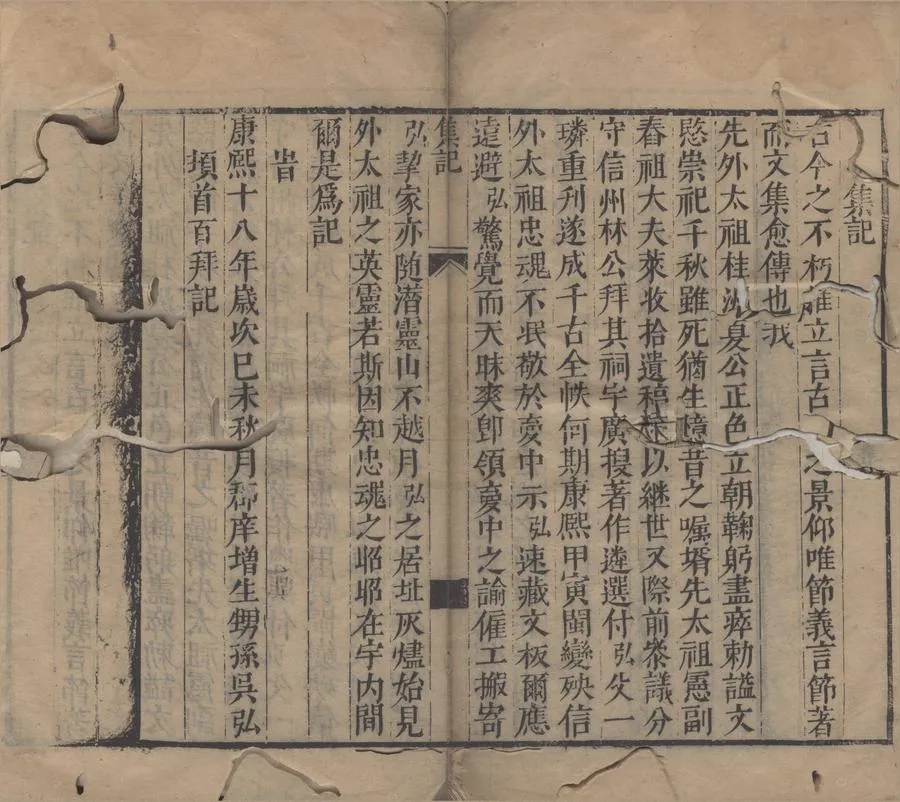 集記
古今之不朽惟立言古之景仰唯節義言節著
而文集愈傳也我
先外太祖桂洲夏公正色立朝鞠躬盡瘁勅謚文
愍崇祀千秋雖死猶生憶昔之囑壻先太祖憲副
春祖大夫萊收拾遺稿以継世又際前叅議分
守信州林公拜其祠宇廣搜著作遴選付弘父一
璘重刊遂成千古全帙何期康熙甲寅閩變殃信
外太祖忠魂不泯敬於夢中示弘速藏文板爾應
遠避弘驚覺而天昧爽卽領夢中之諭僱工搬寄
集記
弘挈家亦随潛靈山不越月弘之居址灰燼始見
外太祖之英靈若斯因知忠魂之昭昭在宇内間
爾是爲記
旹
康熙十八年歲次巳未秋月郡庠增生甥孫吳弘
頊首百拜記